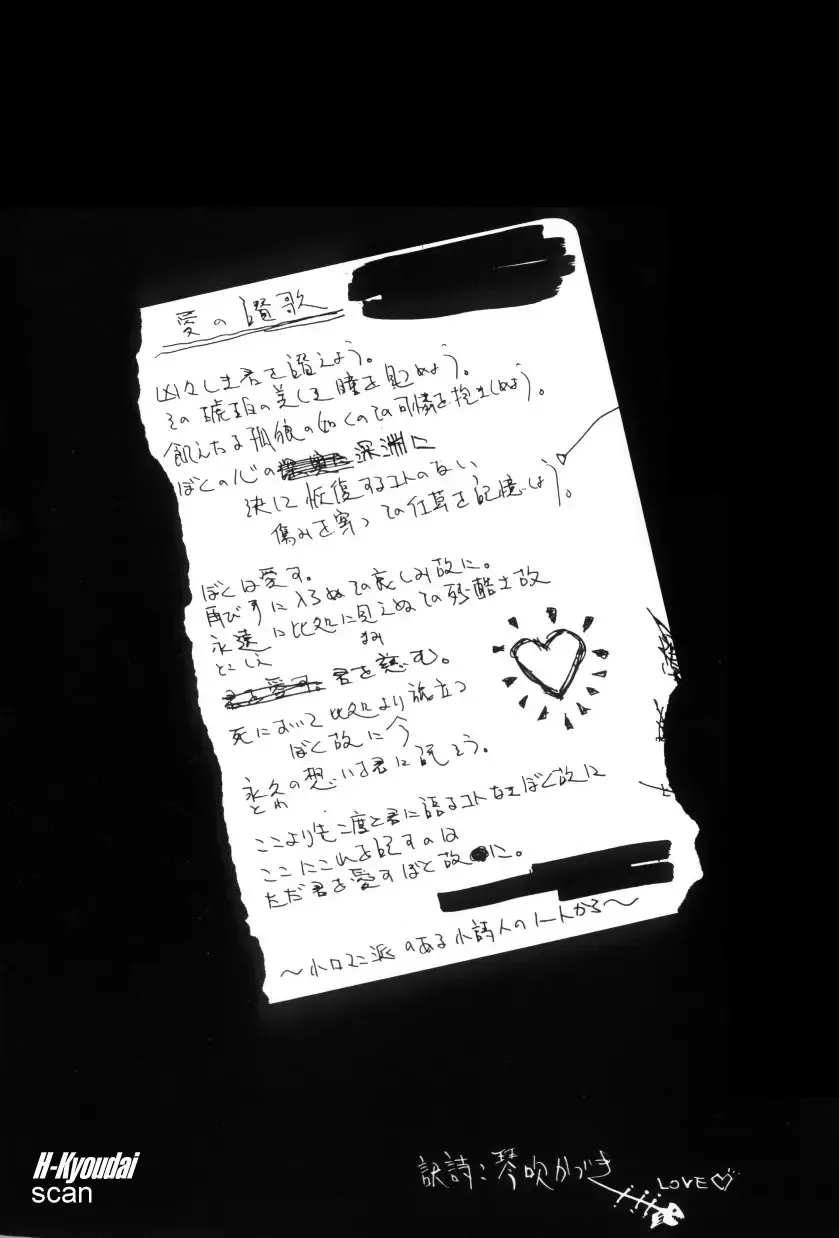 愛の讃歌
凶々しき君を讃えよう。
その琥珀の美しき瞳を見つめよう。
飢えたる孤狼の如くのその可憐を抱きしめよう。
ぼくの心の 深淵に
決して恢復するコトのない
傷みを穿つその仕草を記憶しよう。
ぼくは愛す。
再び手に入らぬその哀しみ故に。
永遠に此処に見えぬその残酷さ故
とこしえ
まみ
君を愛す 君を慈む。
死において此処より旅立つ
ぼく故に今
永久の想いを君に託そう。
とわ
ここよりも二度と君に語るコトなきぼく故に
ここにこれを記すのは
ただ君を愛すぼく故に。
〜小ロマン派のある小詩人のノートから〜
訳詩：琴吹かづき
LOVE♡
H-Kyoudai
scan